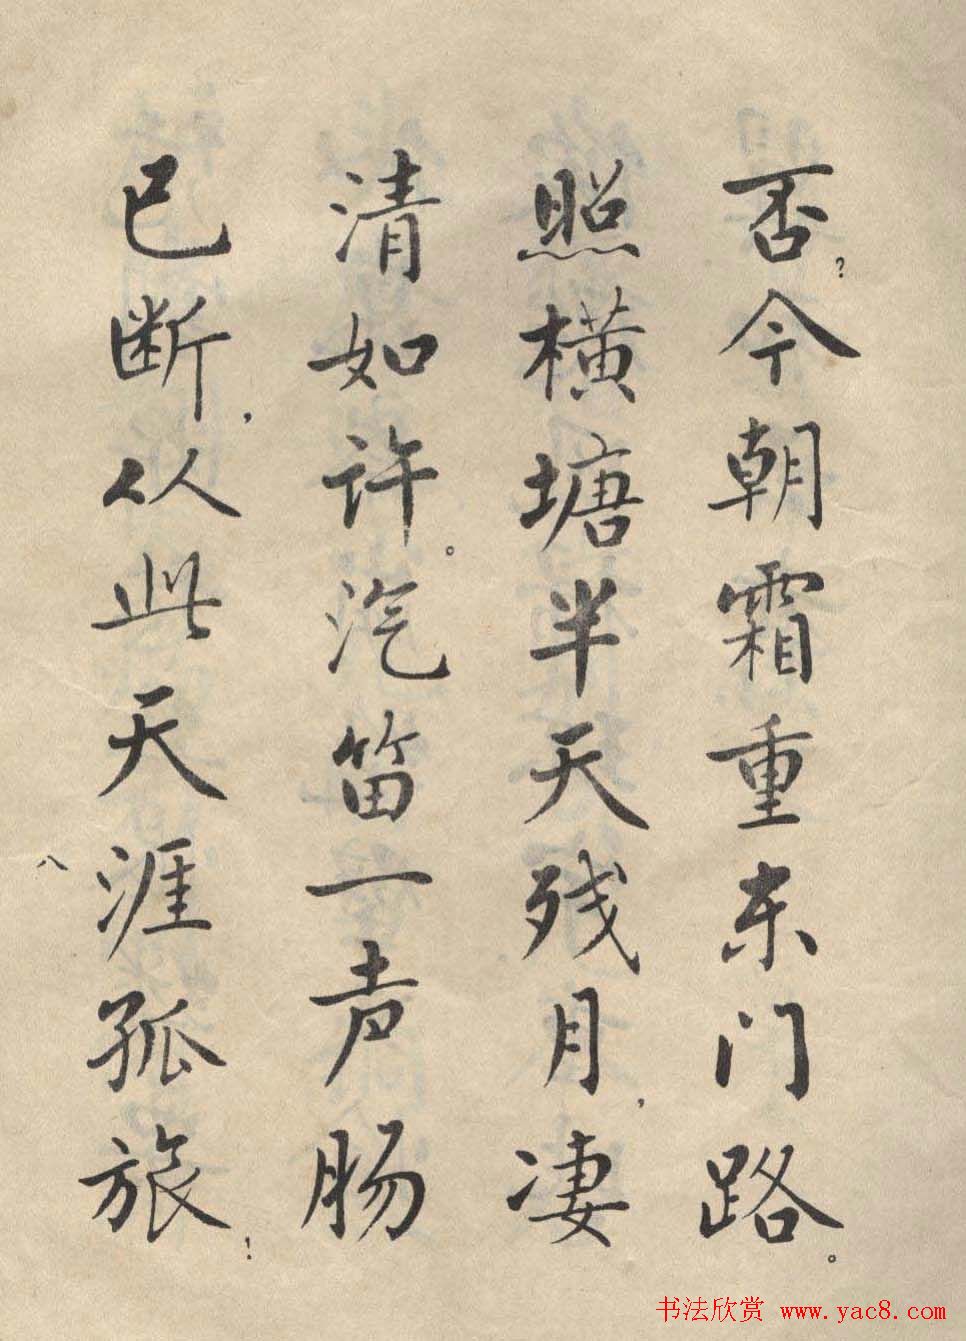 否?今朝霜重东门路。
照横塘半天残月,凄
清如许。汽笛一声肠
已断,从此天涯孤旅!
八
书法欣赏 www.yac8.com